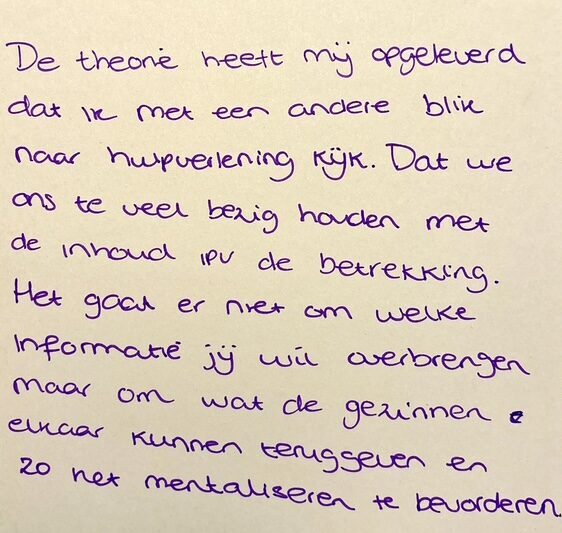 De theorie heeft mij opgeleverd
dat ik met een andere blik
naar hulpverlening kijk. Dat we
ons te veel bezig houden met
de inhoud ipv de betrekking.
Het gaat er niet om welke
informatie jij wil overbrengen
maar om wat de gezinnen
elkaar kunnen teruggeven en
zo het mentaliseren te bevorderen.